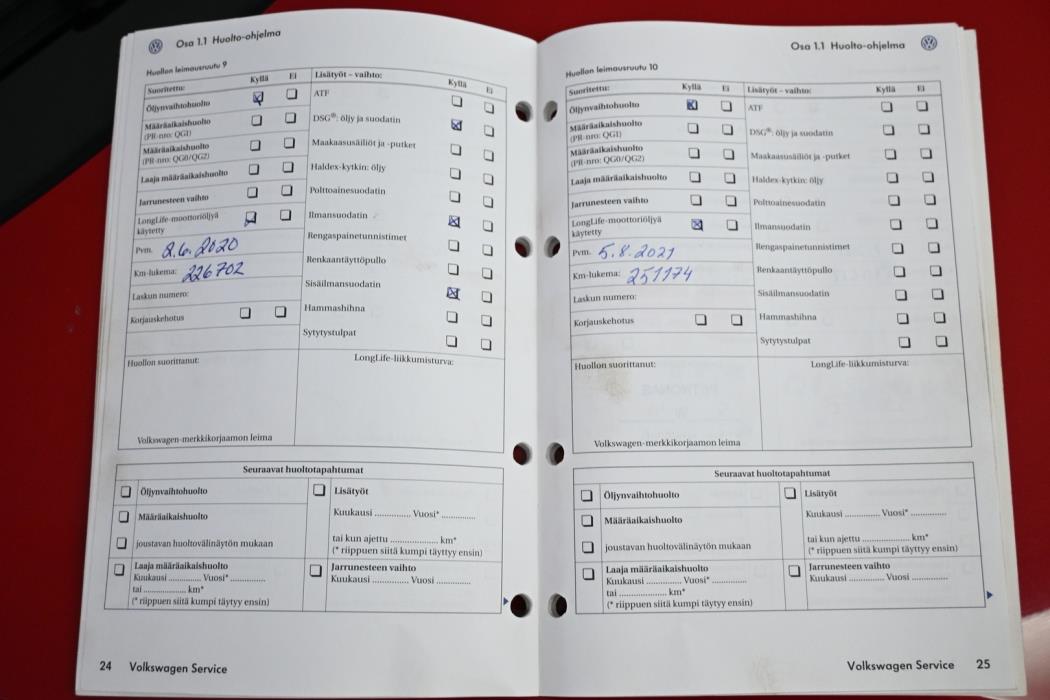 Osa 1.1 Huolto-ohjelma
Huollon leimausruutu 9
Suoritettu: Kyllä Ei
Öljynvaihtohuolto
Määräaikaishuolto
(PR-nro: QG1)
Määräaikaishuolto
(PR-nro: QG0/QG2)
Laaja määräaikaishuolto
Jarrunesteen vaihto
LongLife-moottoriöljyä
käytetty
Pvm. 2.6.2020
Km-lukema: 226702
Laskun numero:
Korjauskehotus
Lisätyöt – vaihto: Kyllä Ei
ATF
DSG®: öljy ja suodatin
Maakaasusäiliöt ja -putket
Haldex-kytkin: öljy
Polttoainesuodatin
Ilmansuodatin
Rengaspainetunnistimet
Renkaantäyttöpullo
Sisäilmansuodatin
Hammashihna
Sytytystulpat
Huollon suorittanut:
LongLife-liikkumisturva:
Volkswagen-merkkikorjaamon leima
Seuraavat huoltotapahtumat
Öljynvaihtohuolto
Määräaikaishuolto
joustavan huoltovälinäytön mukaan
Lisätyöt
Kuukausi .............. Vuosi* .............
tai kun ajettu ...................... km*
(* riippuen siitä kumpi täyttyy ensin)
Laaja määräaikaishuolto
Kuukausi ............ Vuosi* .............
tai .................. km*
(* riippuen siitä kumpi täytyy ensin)
Jarrunesteen vaihto
Kuukausi .............. Vuosi .............
24 Volkswagen Service
Osa 1.1 Huolto-ohjelma
Huollon leimausruutu 10
Suoritettu: Kyllä Ei
Öljynvaihtohuolto
Määräaikaishuolto
(PR-nro: QG1)
Määräaikaishuolto
(PR-nro: QG0/QG2)
Laaja määräaikaishuolto
Jarrunesteen vaihto
LongLife-moottoriöljyä
käytetty
Pvm. 5.8.2021
Km-lukema: 251174
Laskun numero:
Korjauskehotus
Lisätyöt – vaihto: Kyllä Ei
ATF
DSG®: öljy ja suodatin
Maakaasusäiliöt ja -putket
Haldex-kytkin: öljy
Polttoainesuodatin
Ilmansuodatin
Rengaspainetunnistimet
Renkaantäyttöpullo
Sisäilmansuodatin
Hammashihna
Sytytystulpat
Huollon suorittanut:
LongLife-liikkumisturva:
Volkswagen-merkkikorjaamon leima
Seuraavat huoltotapahtumat
Öljynvaihtohuolto
Määräaikaishuolto
joustavan huoltovälinäytön mukaan
Lisätyöt
Kuukausi .............. Vuosi* .............
tai kun ajettu ...................... km*
(* riippuen siitä kumpi täyttyy ensin)
Laaja määräaikaishuolto
Kuukausi ............ Vuosi* .............
tai .................. km*
(* riippuen siitä kumpi täytyy ensin)
Jarrunesteen vaihto
Kuukausi .............. Vuosi .............
Volkswagen Service 25